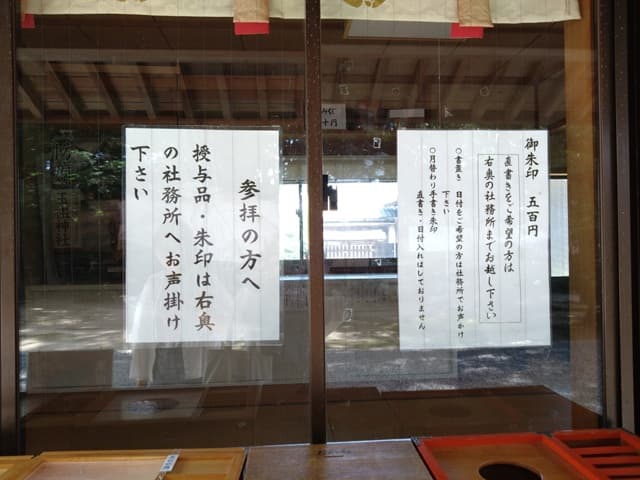 御朱印　五百円
直書きをご希望の方は
右奥の社務所までお越し下さい
○書置き 日付をご希望の方は社務所でお声かけ
下さい
○月替わり手書き朱印
直書き・日付入れはしておりません
参拝の方へ
授与品・朱印は右奥
の社務所へお声掛け
下さい